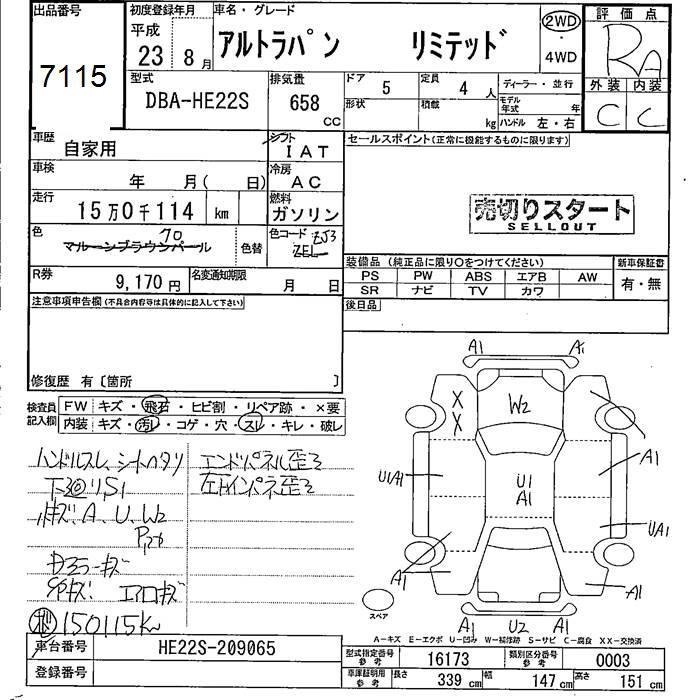 出品番号
7115
初度登録年月
平成
23 8月
車名・グレード
アルトラパン リミテッド
2WD
・
4WD
評価点
RA
外装 内装
C C
型式
DBA-HE22S
排気量
658
cc
ドア
5
定員
4 人
形状
積載
kg
ディーラー・並行
モデル年式 年
ハンドル 左・右
車歴
自家用
シフト
IAT
車検
年 月( 日)
冷房
AC
走行
15万0千114 km
燃料
ガソリン
色
70
マルーンブラウンパール
色替
色コード
ZJ3
ZEL
R券
9,170円
名変通知期限
月 日
セールスポイント(正常に機能するものに限ります)
売切りスタート
SELLOUT
装備品(純正品に限り○をつけてください)
PS PW ABS エアB AW
SR ナビ TV カワ
新車保証書
有・無
後日品
注意事項申告欄(不具合内容等は具体的に記入して下さい)
修復歴 有〔箇所 〕
検査員
記入欄
FW キズ・飛石・ヒビ割・リペア跡・×要
内装 キズ・汚レ・コゲ・穴・スレ・キレ・破レ
ハンドルスレ、シートヘタリ
エンドパネル歪ミ
左ドインパネ歪ミ
キズ、A、U、W2
エアロキズ
150115K
A1 A1
X
X
W2
A1
UA1
U1
A1
UA1
A1
A1
A1 U2 A1
スペア
A-キズ E-エクボ U-凹み W-補修跡 S-サビ C-腐食 XX-交換済
車台番号
HE22S-209065
登録番号
型式指定番号
参考
16173
類別区分番号
参考
0003
車庫証明用
参考
長さ 339 cm 幅 147 cm 高さ 151 cm